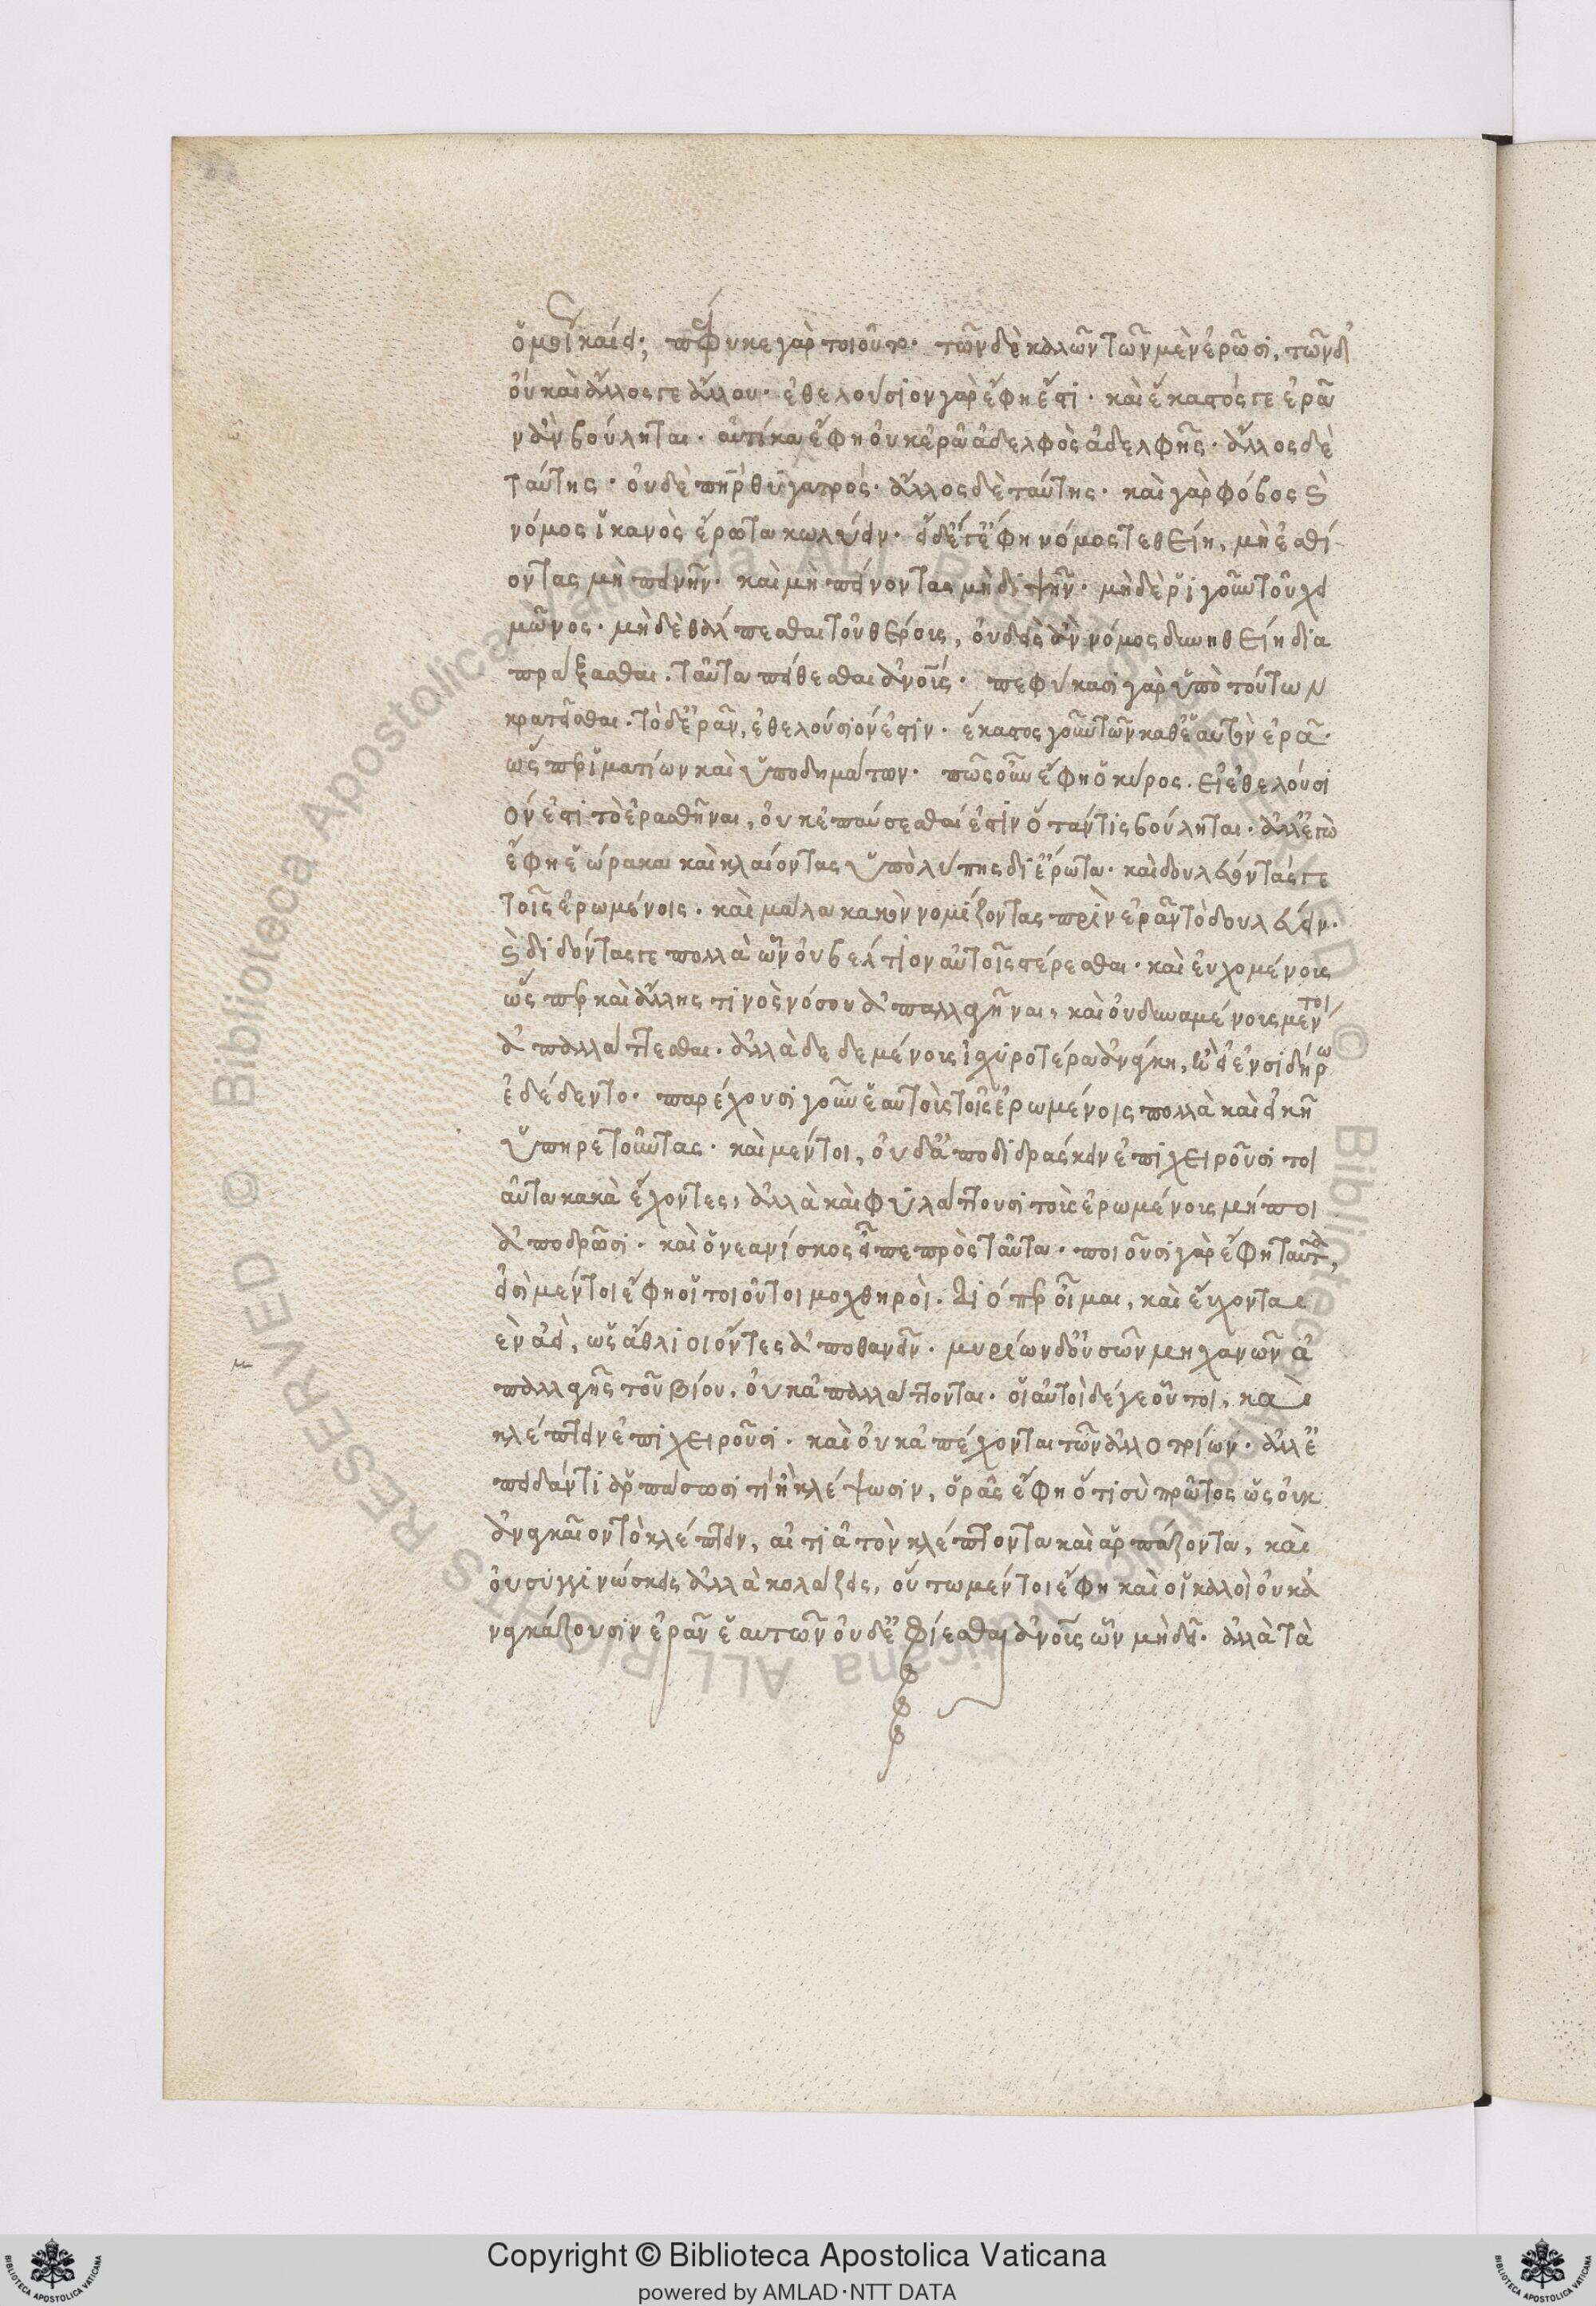 ὅμοια καίει; πέφυκε γὰρ τοιοῦτο· τῶν δὲ καλῶν τῶν μὲν ἐρῶσι, τῶν δ'
οὔ καὶ ἄλλος τε ἄλλου· ἐθελούσιον γὰρ ἔφη ἔστι· καὶ ἕκαστός τε ἐρᾶ
ν ἂν βούληται· αὐτίκα ἔφη οὐκ ἐρᾷ ἀδελφὸς ἀδελφῆς· ἄλλος δὲ
ταύτης· οὐδὲ πὴρ θυγατρός· ἄλλος δὲ ταύτης· καὶ γὰρ φόβος καὶ
νόμος ἱκανὸς ἔρωτα κωλύειν· εἰ δέ γ' ἔφη νόμος τεθείη, μὴ ἐσθί
οντας μὴ πεινῆν· καὶ μὴ πίνοντας μὴ διψῆν· μὴ δὲ ῥιγοῦν τοῦ χει
μῶνος· μὴ δὲ θάλπεσθαι τοῦ θέρους, οὐδεὶς ἂν νόμος δυνηθείη δια
πράξασθαι· ταῦτα πείθεσθαι ἀνοις· πεφύκασι γὰρ ὑπὸ τούτων
κρατεῖσθαι· τὸ δ' ἐρᾶν, ἐθελούσιόν ἐστιν· ἕκαστος γοῦν τῶν καθ' ἑαυτὸν ἐρᾶ·
ὥς περ ἱματίων καὶ ὑποδημάτων· πῶς οὖν ἔφη ὁ κύρος· εἰ ἐθελούσι
όν ἐστι τὸ ἐρασθῆναι, οὐ κὲ παύσεσθαί ἐστιν ὅταν τις βούληται· ἀλλ' ἐγὼ
ἔφη ἑώρακα καὶ κλαίοντας ὑπὸ λύπης δι' ἔρωτα· καὶ δουλεύοντάς τε
τοῖς ἐρωμένοις· καὶ μάλα κακὸν νομίζοντας πρὶν ἐρᾶν τὸ δουλεύειν·
καὶ διδόντας τε πολλὰ ὧν οὐ βέλτιον αὐτοῖς στέρεσθαι· καὶ εὐχομένους
ὥς περ καὶ ἄλλης τινὸς νόσου ἀπαλλαγῆναι, καὶ οὐ δυναμένους μέντοι
ἀπαλλάττεσθαι· ἀλλὰ δεδεμένους ἰσχυροτέρα ἀνάγκη, ἢ εἰ ἐν σιδήρω
ἐδέδεντο· παρέχουσι γοῦν ἑαυτοὺς τοῖς ἐρωμένοις πολλὰ καὶ εἰκῆ
ὑπηρετοῦντας· καὶ μέντοι, οὐδ' ἀποδιδράσκειν ἐπιχειροῦσι τοι
αῦτα κακὰ ἔχοντες, ἀλλὰ καὶ φυλάττουσι τοὺς ἐρωμένους μή ποι
ἀποδρῶσι· καὶ ὁ νεανίσκος εἶπε πρὸς ταῦτα· ποιοῦσι γὰρ ἔφη ταῦτα,
εἰσὶ μέντοι ἔφη οἱ τοιοῦτοι μοχθηροί· διό περ οἶμαι, καὶ εὔχονται
ἐν ἀεὶ, ὡς ἄθλιοι ὄντες ἀποθανεῖν· μυρίων δ' οὐσῶν μηχανῶν ἀ
παλλαγῆς τοῦ βίου, οὐκ ἀπαλλάττονται· οἱ αὐτοὶ δέ γε οὗτοι, καὶ
κλέπτειν ἐπιχειροῦσι· καὶ οὐκ ἀπέχονται τῶν ἀλλοτρίων· ἀλλ' ἐ
πειδάν τι ἁρπάσωσί τι ἢ κλέψωσιν, ὁρᾶς ἔφη ὅτι σὺ πρῶτος ὡς οὐκ
ἀναγκαῖον τὸ κλέπτειν, αἰτιᾶ τὸν κλέπτοντα καὶ ἁρπάζοντα, καὶ
οὐ συγγινώσκεις ἀλλὰ κολάζεις, οὕτω μέντοι ἔφη καὶ οἱ καλοὶ οὐκ ἀ
ναγκάζουσιν ἐρᾶν ἑαυτῶν οὐδ' ἐφίεσθαι ἀνοις ὧν μὴ δεῖ· ἀλλὰ τὰ